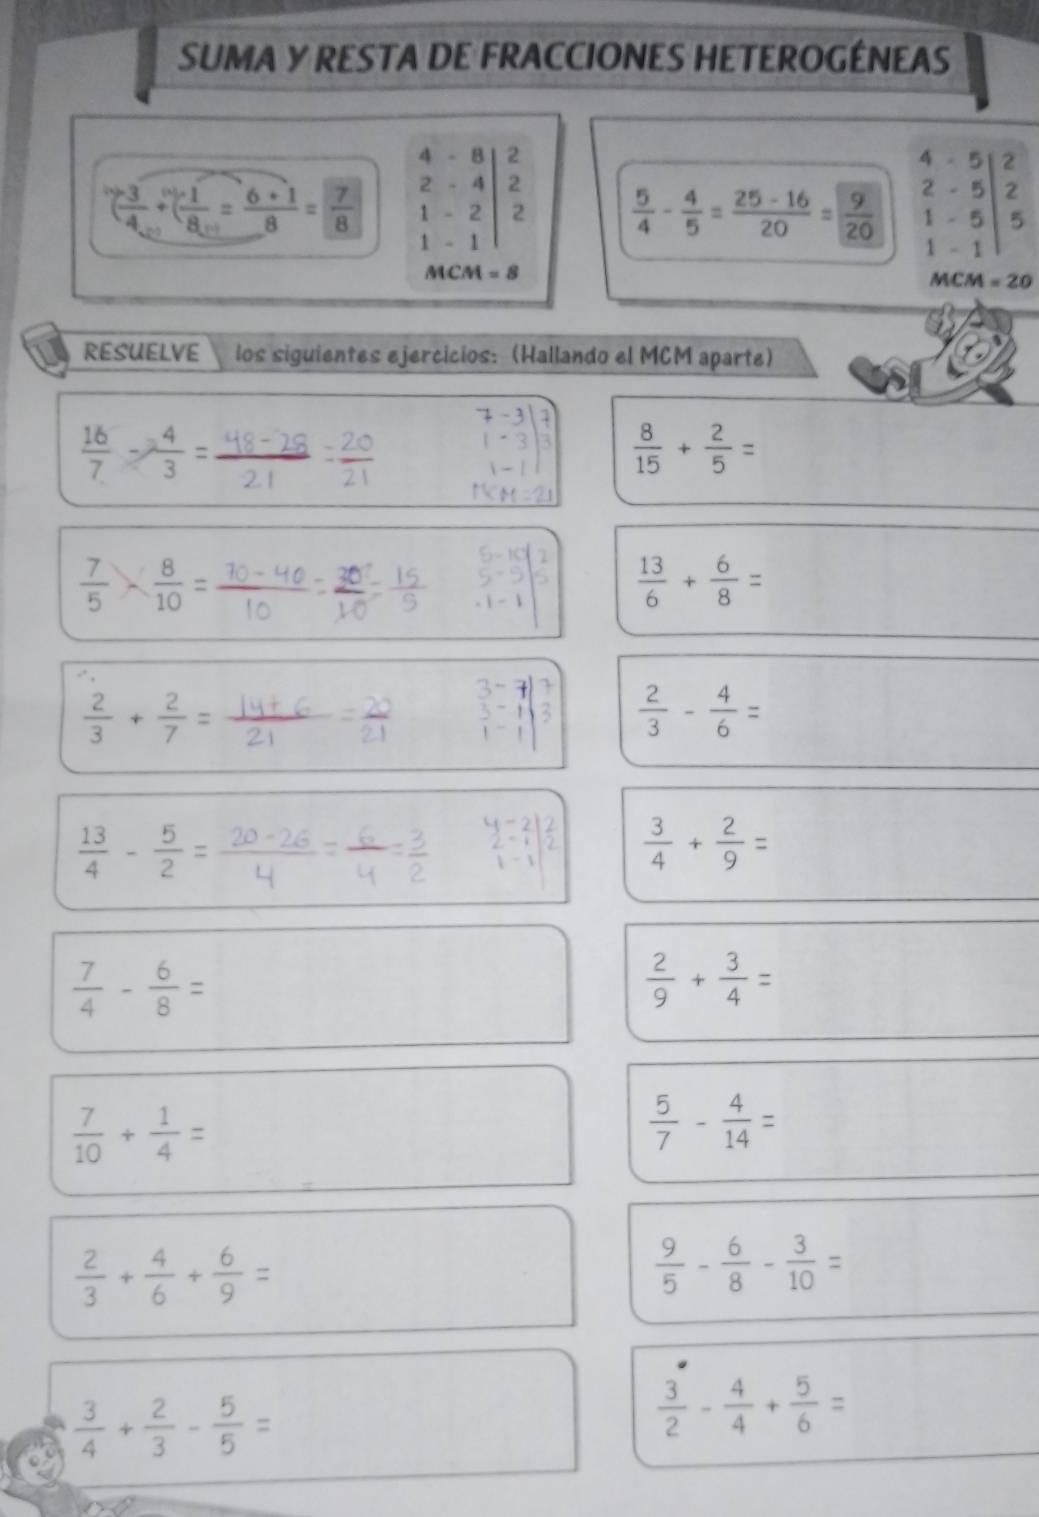 SUMA Y RESTA DE FRACCIONES HETEROGÉNEAS
3/4 + 1/8 = 6 + 1/8 = 7/8
4 - 8 | 2
2 - 4 | 2
1 - 2 | 2
1 - 1 |
MCM = 8
5/4 - 4/5 = 25 - 16/20 = 9/20
4 - 5 | 2
2 - 5 | 2
1 - 5 | 5
1 - 1 |
MCM = 20
RESUELVE los siguientes ejercicios: (Hallando el MCM aparte)
16/7 - 4/3 = 48 - 28/21 = 20/21
7 - 3 | 7
1 - 3 | 3
1 - 1 |
MCM = 21
8/15 + 2/5 =
7/5 - 8/10 = 70 - 40/10 = 30/10 = 15/5
5 - 10 | 2
5 - 5 | 5
1 - 1 |
13/6 + 6/8 =
2/3 + 2/7 = 14 + 6/21 = 20/21
3 - 7 | 7
3 - 1 | 3
1 - 1 |
2/3 - 4/6 =
13/4 - 5/2 = 20 - 26/4 = 6/4 = 3/2
4 - 2 | 2
2 - 1 | 2
1 - 1 |
3/4 + 2/9 =
7/4 - 6/8 =
2/9 + 3/4 =
7/10 + 1/4 =
5/7 - 4/14 =
2/3 + 4/6 + 6/9 =
9/5 - 6/8 - 3/10 =
3/4 + 2/3 - 5/5 =
3/2 - 4/4 + 5/6 =